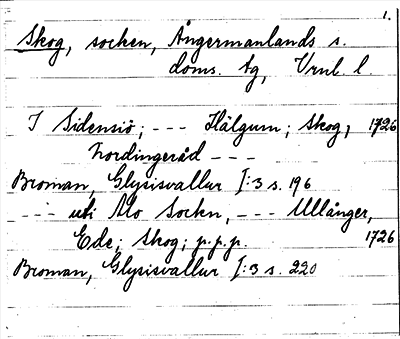 1.
Skog, socken, Ångermanlands s.
doms. tg, Vrnl. l.
I Sidensiö; --- Hälgum; Skog, 1726
Nordingeråd ---
Broman, Glysisvallur I:3 s. 196
--- uti Alo Sockn, --- Ullånger,
Ede; Skog; p.p.p. 1726
Broman, Glysisvallur I:3 s. 220